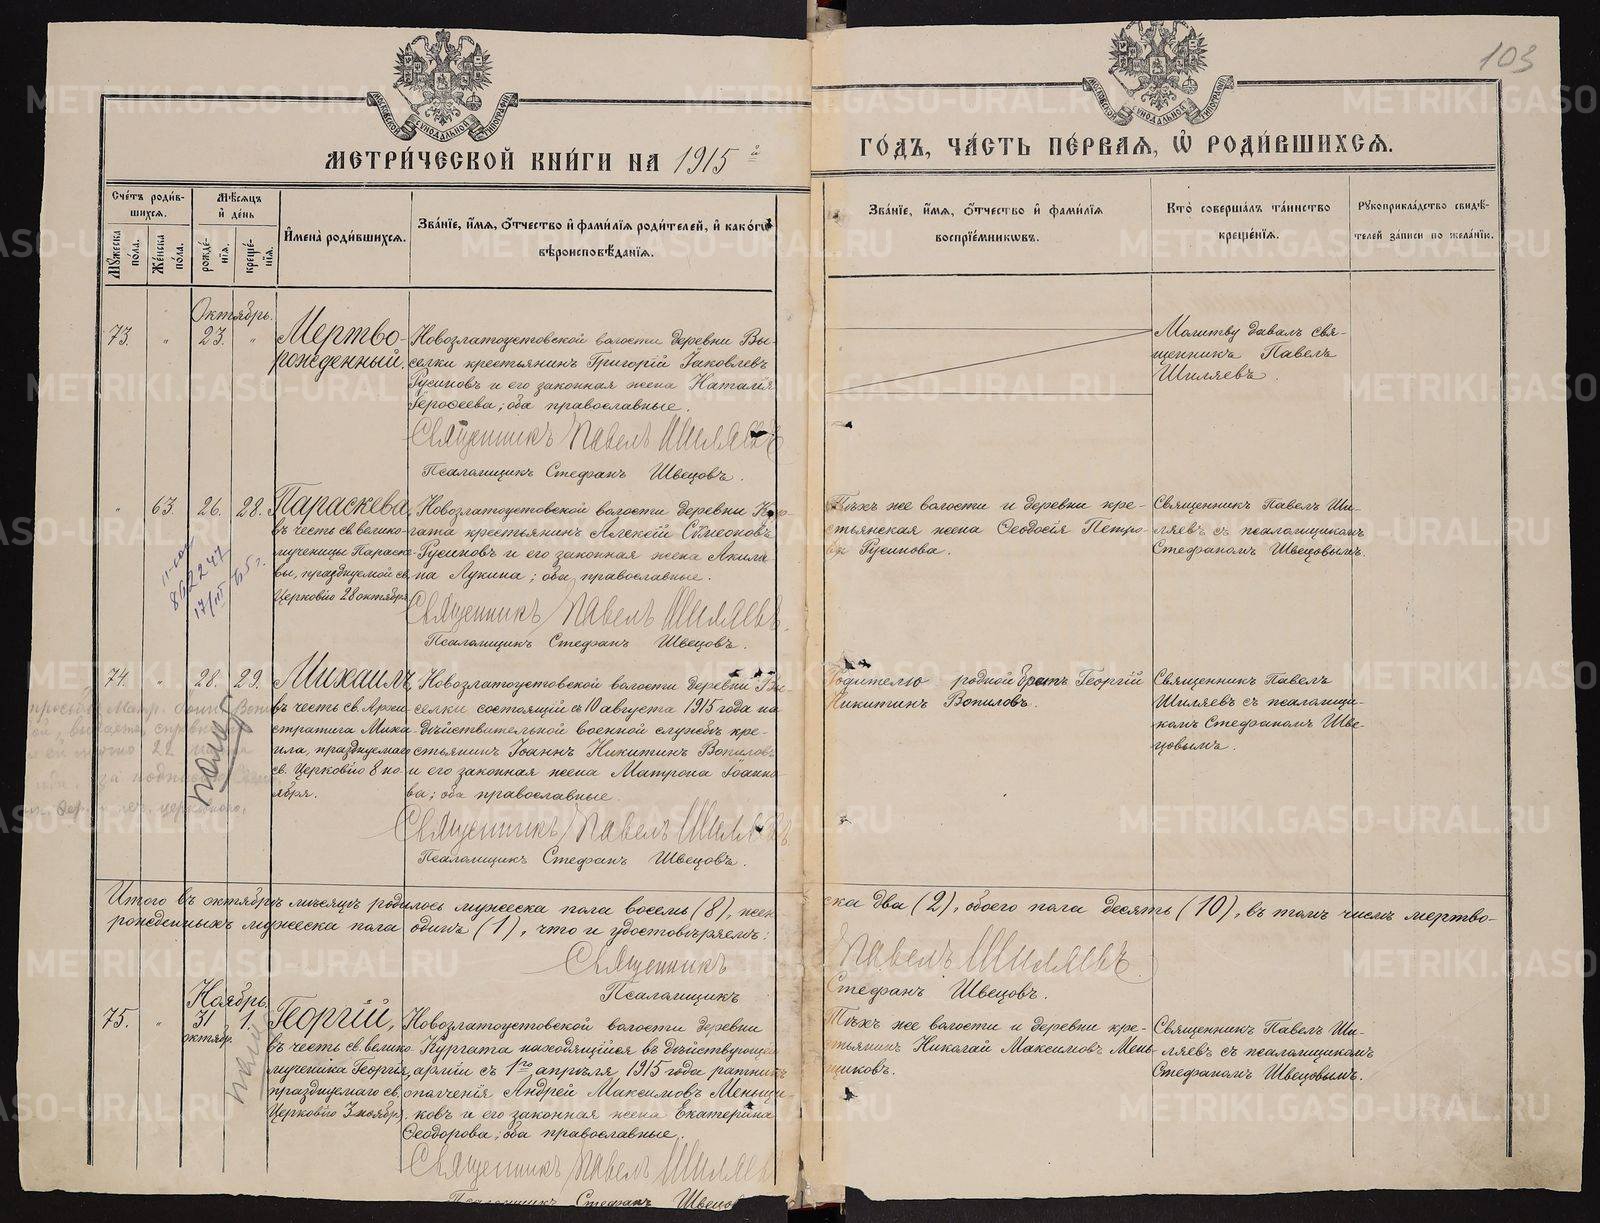 103
МОСКОВСКОЙ СѴНОДАЛЬНОЙ ТИПОГРАФІИ
МОСКОВСКОЙ СѴНОДАЛЬНОЙ ТИПОГРАФІИ
МЕТРИ́ЧЕСКОЙ КНИ́ГИ НА 1915 й
ГО́ДЪ, ЧА́СТЬ ПЕ́РВАЯ, Ѽ РОДИ́ВШИХСЯ.
Сче́тъ роди́в-
шихся.
Мꙋ́жеска по́ла.
Же́нска по́ла.
Мѣ́сяцъ и҆ де́нь
рожде́-
нїя.
креще́-
нїя.
И҆мена̀ роди́вшихся.
Зва́нїе, и҆́мя, ѻ҆́тчество и҆ фами́лїя роди́телей, и҆ како́гѡ
вѣроисповѣ́данїя.
Зва́нїе, и҆́мя, ѻ҆́тчество и҆ фами́лїя
воспрїе́мникѡвъ.
Кто̀ соверша́лъ та́инство
креще́нїя.
Рꙋкоприкла́дство свидѣ́-
телей за́писи по жела́нїю.
Октябрь.
73. " 23. "
Мертво-
рожденный.
Новозлатоустовской волости деревни Вы-
селки крестьянинъ Григорій Іаковлевъ
Русиновъ и его законная жена Наталія
Ѳерофеева; оба православные.
Священникъ Павелъ Шиляевъ
Псаломщикъ Стефанъ Швецовъ.
Молитву давалъ свя-
щенникъ Павелъ
Шиляевъ.
" 63. 26. 28.
Параскева,
въ честь св. велико-
мученицы Параске-
вы, празднуемой св.
Церковію 28 октября
Новозлатоустовской волости деревни Кур-
гата крестьянинъ Алексій Сѵмеоновъ
Русиновъ и его законная жена Акили-
на Лукина; оба православные.
Священникъ Павелъ Шиляевъ.
Псаломщикъ Стефанъ Швецовъ.
Тѣхъ же волости и деревни кре-
стьянская жена Ѳеодосія Петро-
ва Русинова.
Священникъ Павелъ Ши-
ляевъ съ псаломщикомъ
Стефаномъ Швецовымъ.
862247
17/III
74. " 28. 29.
Михаилъ,
въ честь св. Архи-
стратига Миха-
ила, празднуемаго
св. Церковію 8 но-
ября.
Новозлатоустовской волости деревни Вы-
селки состоящій съ 10 августа 1915 года на
дѣйствительной военной службѣ кре-
стьянинъ Іоаннъ Никитинъ Вопиловъ
и его законная жена Матрона Іоанно-
ва; оба православные.
Священникъ Павелъ Шиляевъ
Псаломщикъ Стефанъ Швецовъ.
Родителю родной братъ Георгій
Никитинъ Вопиловъ.
Священникъ Павелъ
Шиляевъ съ псаломщи-
комъ Стефаномъ Шве-
цовымъ.
Итого въ октябрѣ мѣсяцѣ родилось мужеска пола восемь (8), жен-
ска два (2), обоего пола десять (10), въ томъ числѣ мертво-
рожденныхъ мужеска пола одинъ (1), что и удостовѣряемъ:
Священникъ Павелъ Шиляевъ.
Псаломщикъ Стефанъ Швецовъ.
Ноябрь.
75. " 31 октябр. 1.
Георгій,
въ честь св. велико-
мученика Георгія,
празднуемаго св.
Церковію 3 ноября,
Новозлатоустовской волости деревни
Кургата находящійся въ дѣйствующей
арміи съ 1го апрѣля 1915 года ратникъ
ополченія Андрей Максимовъ Меньщи-
ковъ и его законная жена Екатерина
Ѳеодорова; оба православные.
Священникъ Павелъ Шиляевъ
Псаломщикъ Стефанъ Швецовъ
Тѣхъ же волости и деревни кре-
стьянинъ Николай Максимовъ Мень-
щиковъ.
Священникъ Павелъ Ши-
ляевъ съ псаломщикомъ
Стефаномъ Швецовымъ.
METRIKI.GASO-URAL.RU